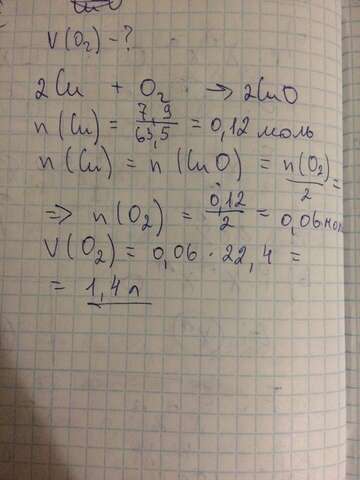 V(O₂) - ?
2Cu + O₂ → 2CuO
n(Cu) = 7,9/63,5 = 0,12 моль
n(Cu) = n(CuO) = n(O₂)/2 =
=> n(O₂) = 0,12/2 = 0,06 мол
V(O₂) = 0,06 · 22,4 =
= 1,4 л